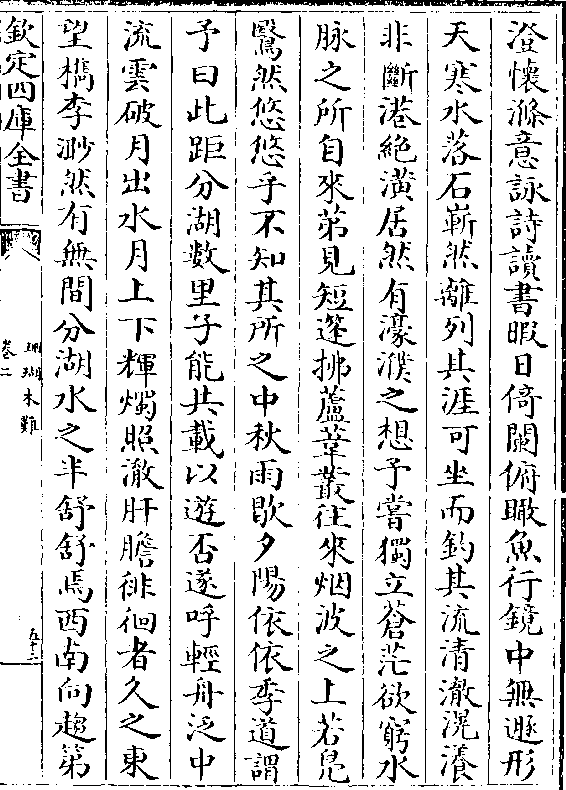 澄懷滌意詠詩讀書暇日倚闌俯瞰魚行鏡中無遯形
天寒水落石嶄然離列其涯可坐而釣其流清澈滉瀁
非斷港絶潢居然有濠濮之想予嘗獨立蒼茫欲窮水
脉之所自來第見短篷拂蘆葦叢往來烟波之上若鳧
鷖然悠悠乎不知其所之中秋雨歇夕陽依依季道謂
予曰此距分湖數里子能共載以遊否遂呼輕舟泛中
流雲破月出水月上下輝燭照澈肝膽徘徊者久之東
望檇李渺然有無間分湖水之半舒舒焉西南向趨第
欽定四庫全書
珊瑚木難
卷二
五十二